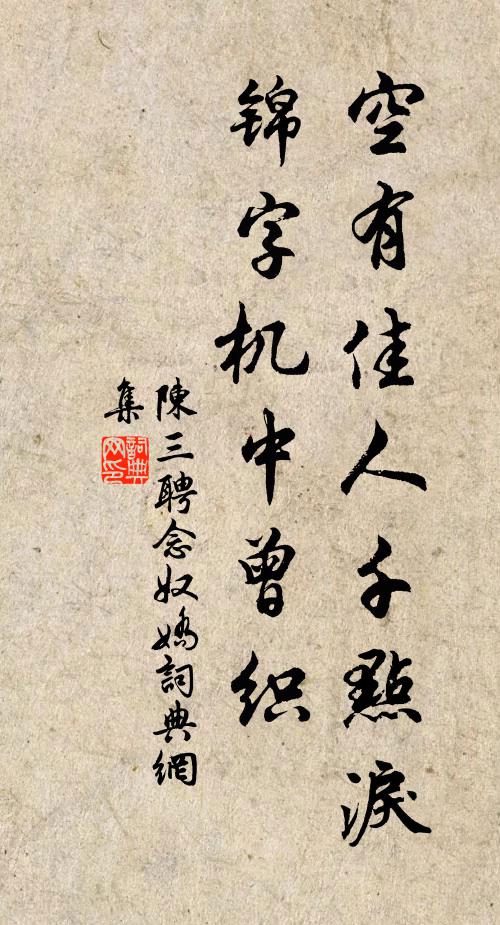 空有佳人千點淚
锦字机中曾织
陳三聘念奴嬌詞典網
集
詞典
网印